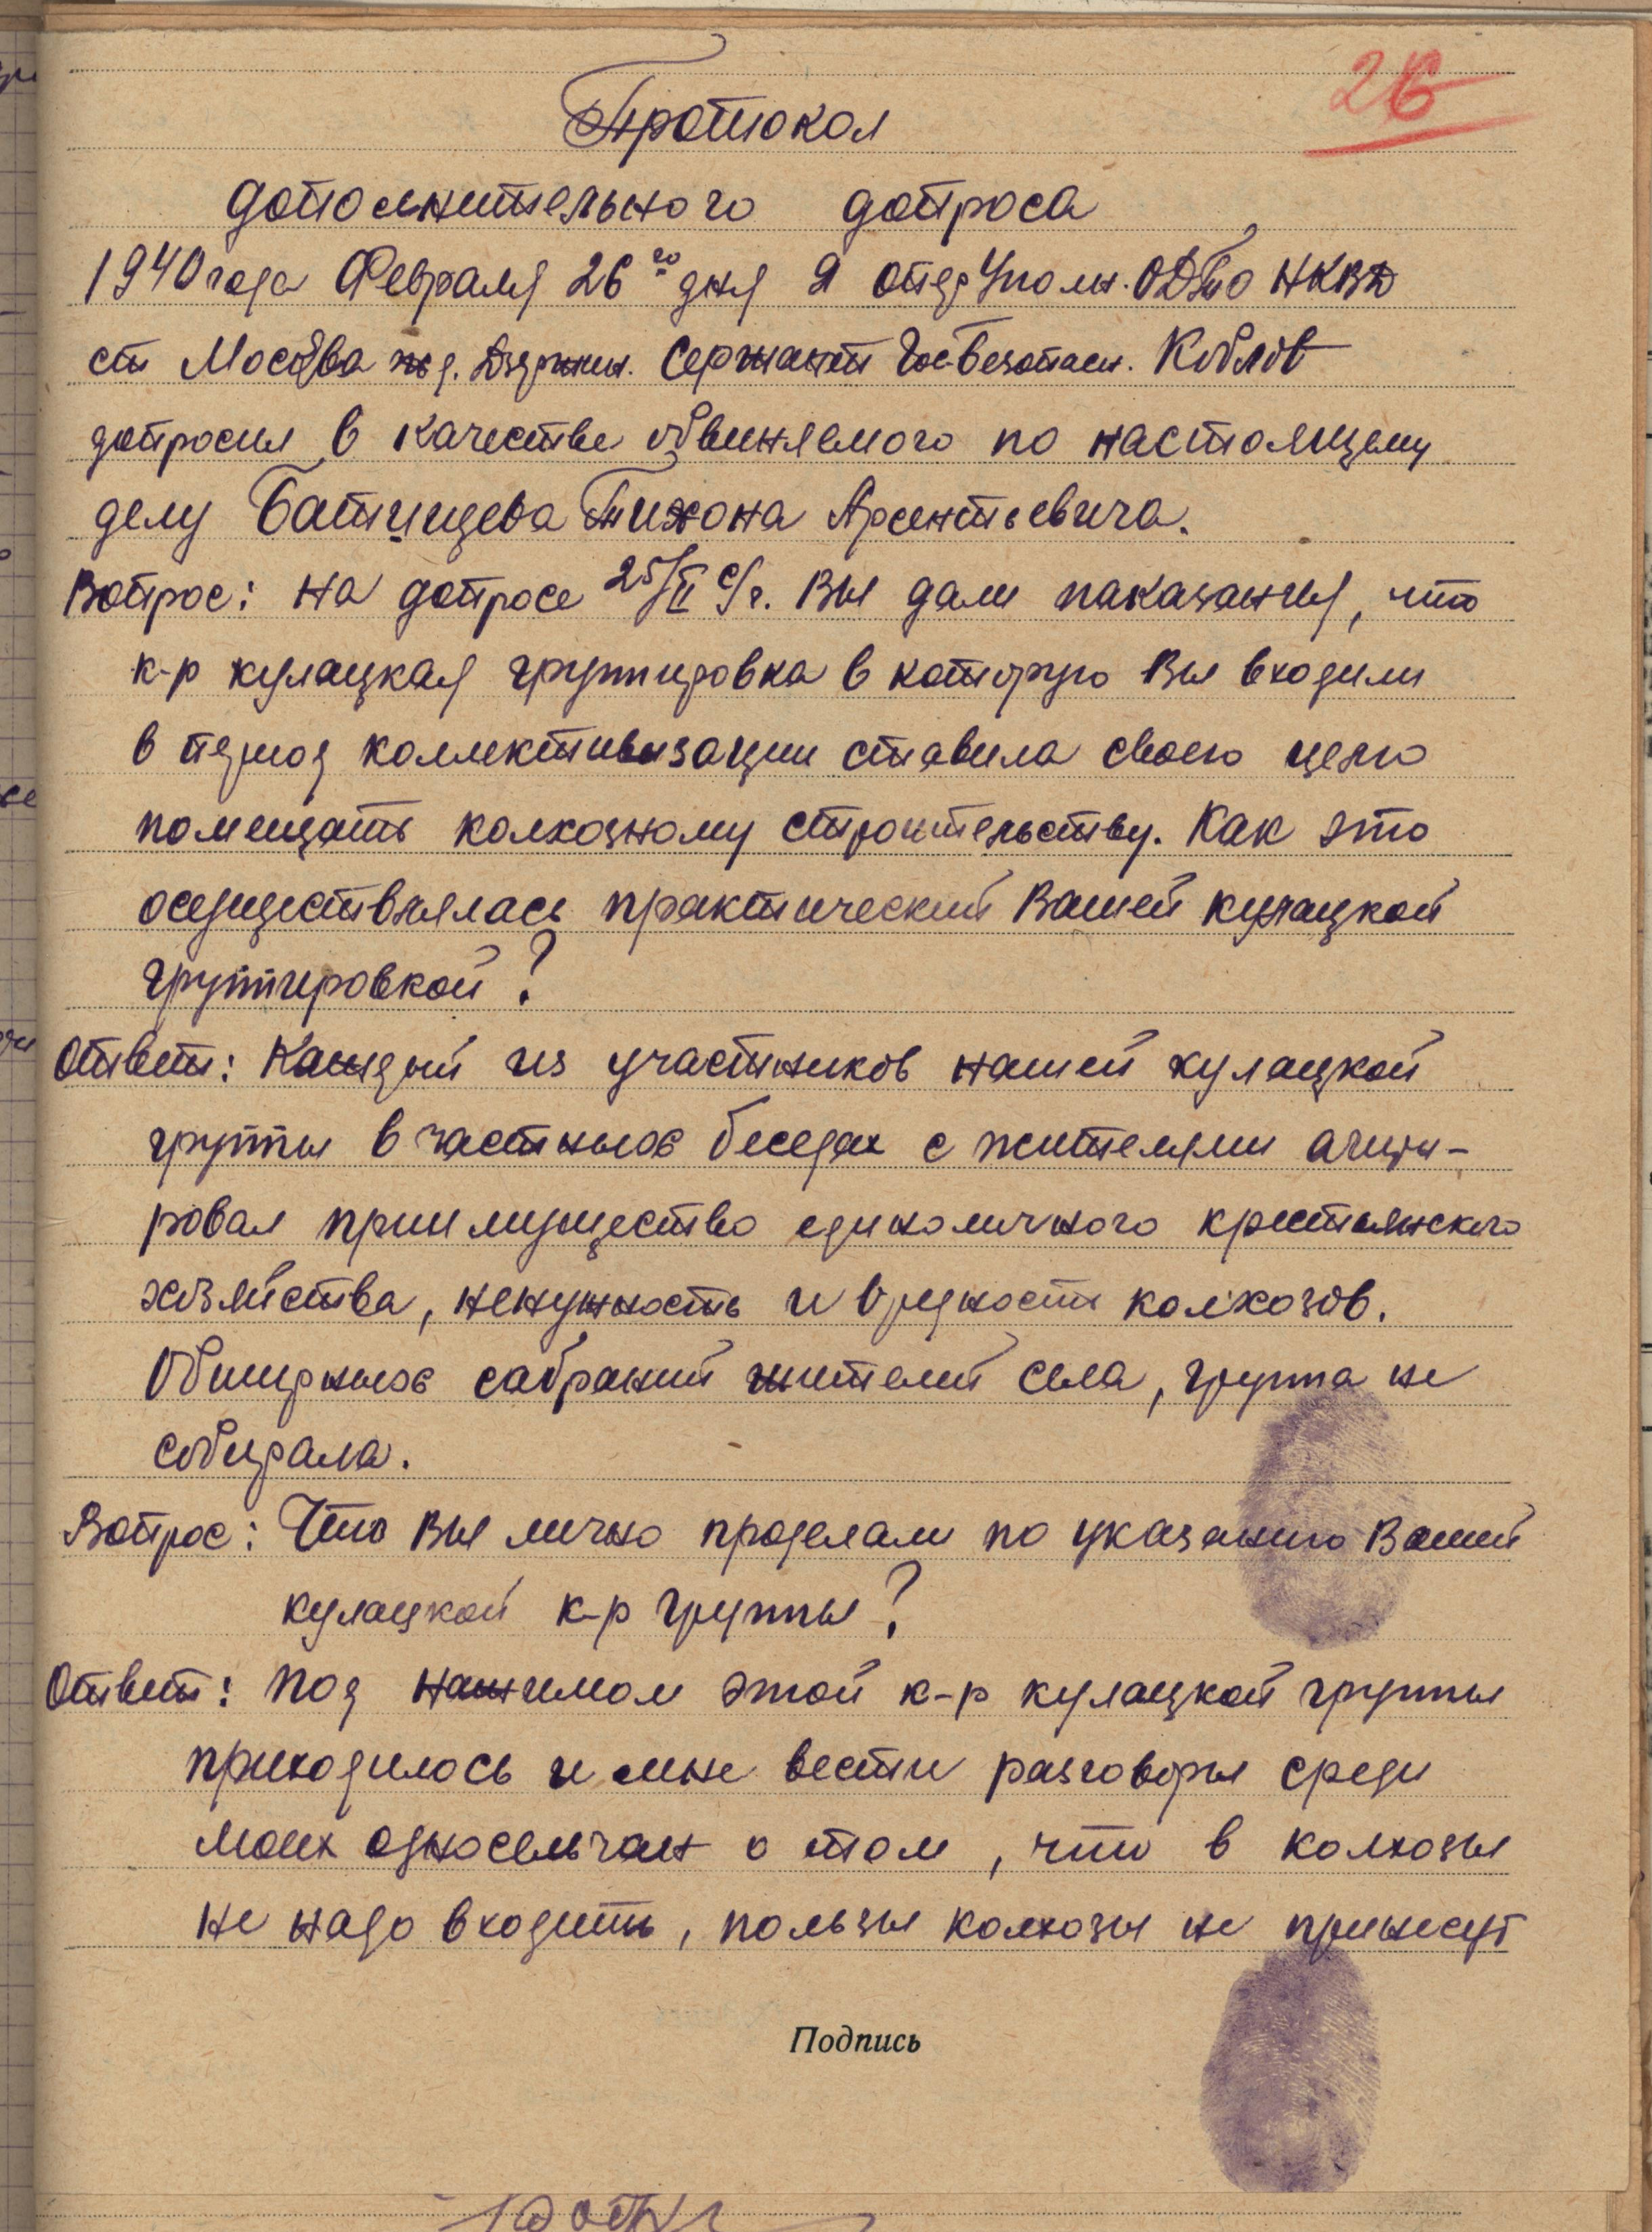 26
Протокол
дополнительного допроса
1940 года Февраля 26го дня Я опер Уполн. ОДТО НКВД
ст Москва ж.д. Дзержин. Сержант Гос-Безопасн. Коблов
допросил в качестве обвиняемого по настоящему
делу Батищева Тихона Арсентьевича.
Вопрос: На допросе 25/II с/г. Вы дали паказания, что
к-р кулацкая группировка в которую Вы входили
в период коллективизации ставила своею целю
помещать колхозному строительству. Как это
осуществлялась практический Вашей кулацкой
группировкой?
Ответ: Каждый из участников нашей кулацкой
группы в частных беседах с жителями агити-
ровал приимущество единоличного крестьянского
хозяйства, ненужность и вредность колхозов.
Обширных сабраний жителей села, группа не
собирала.
Вопрос: Что Вы лично проделали по указанию Вашей
кулацкой к-р группы?
Ответ: Под нажимом этой к-р кулацкой группы
приходилось и мне вести разговоры среди
моих односельчан о том, что в колхозы
не надо входить, пользы колхозы не принесут
Подпись